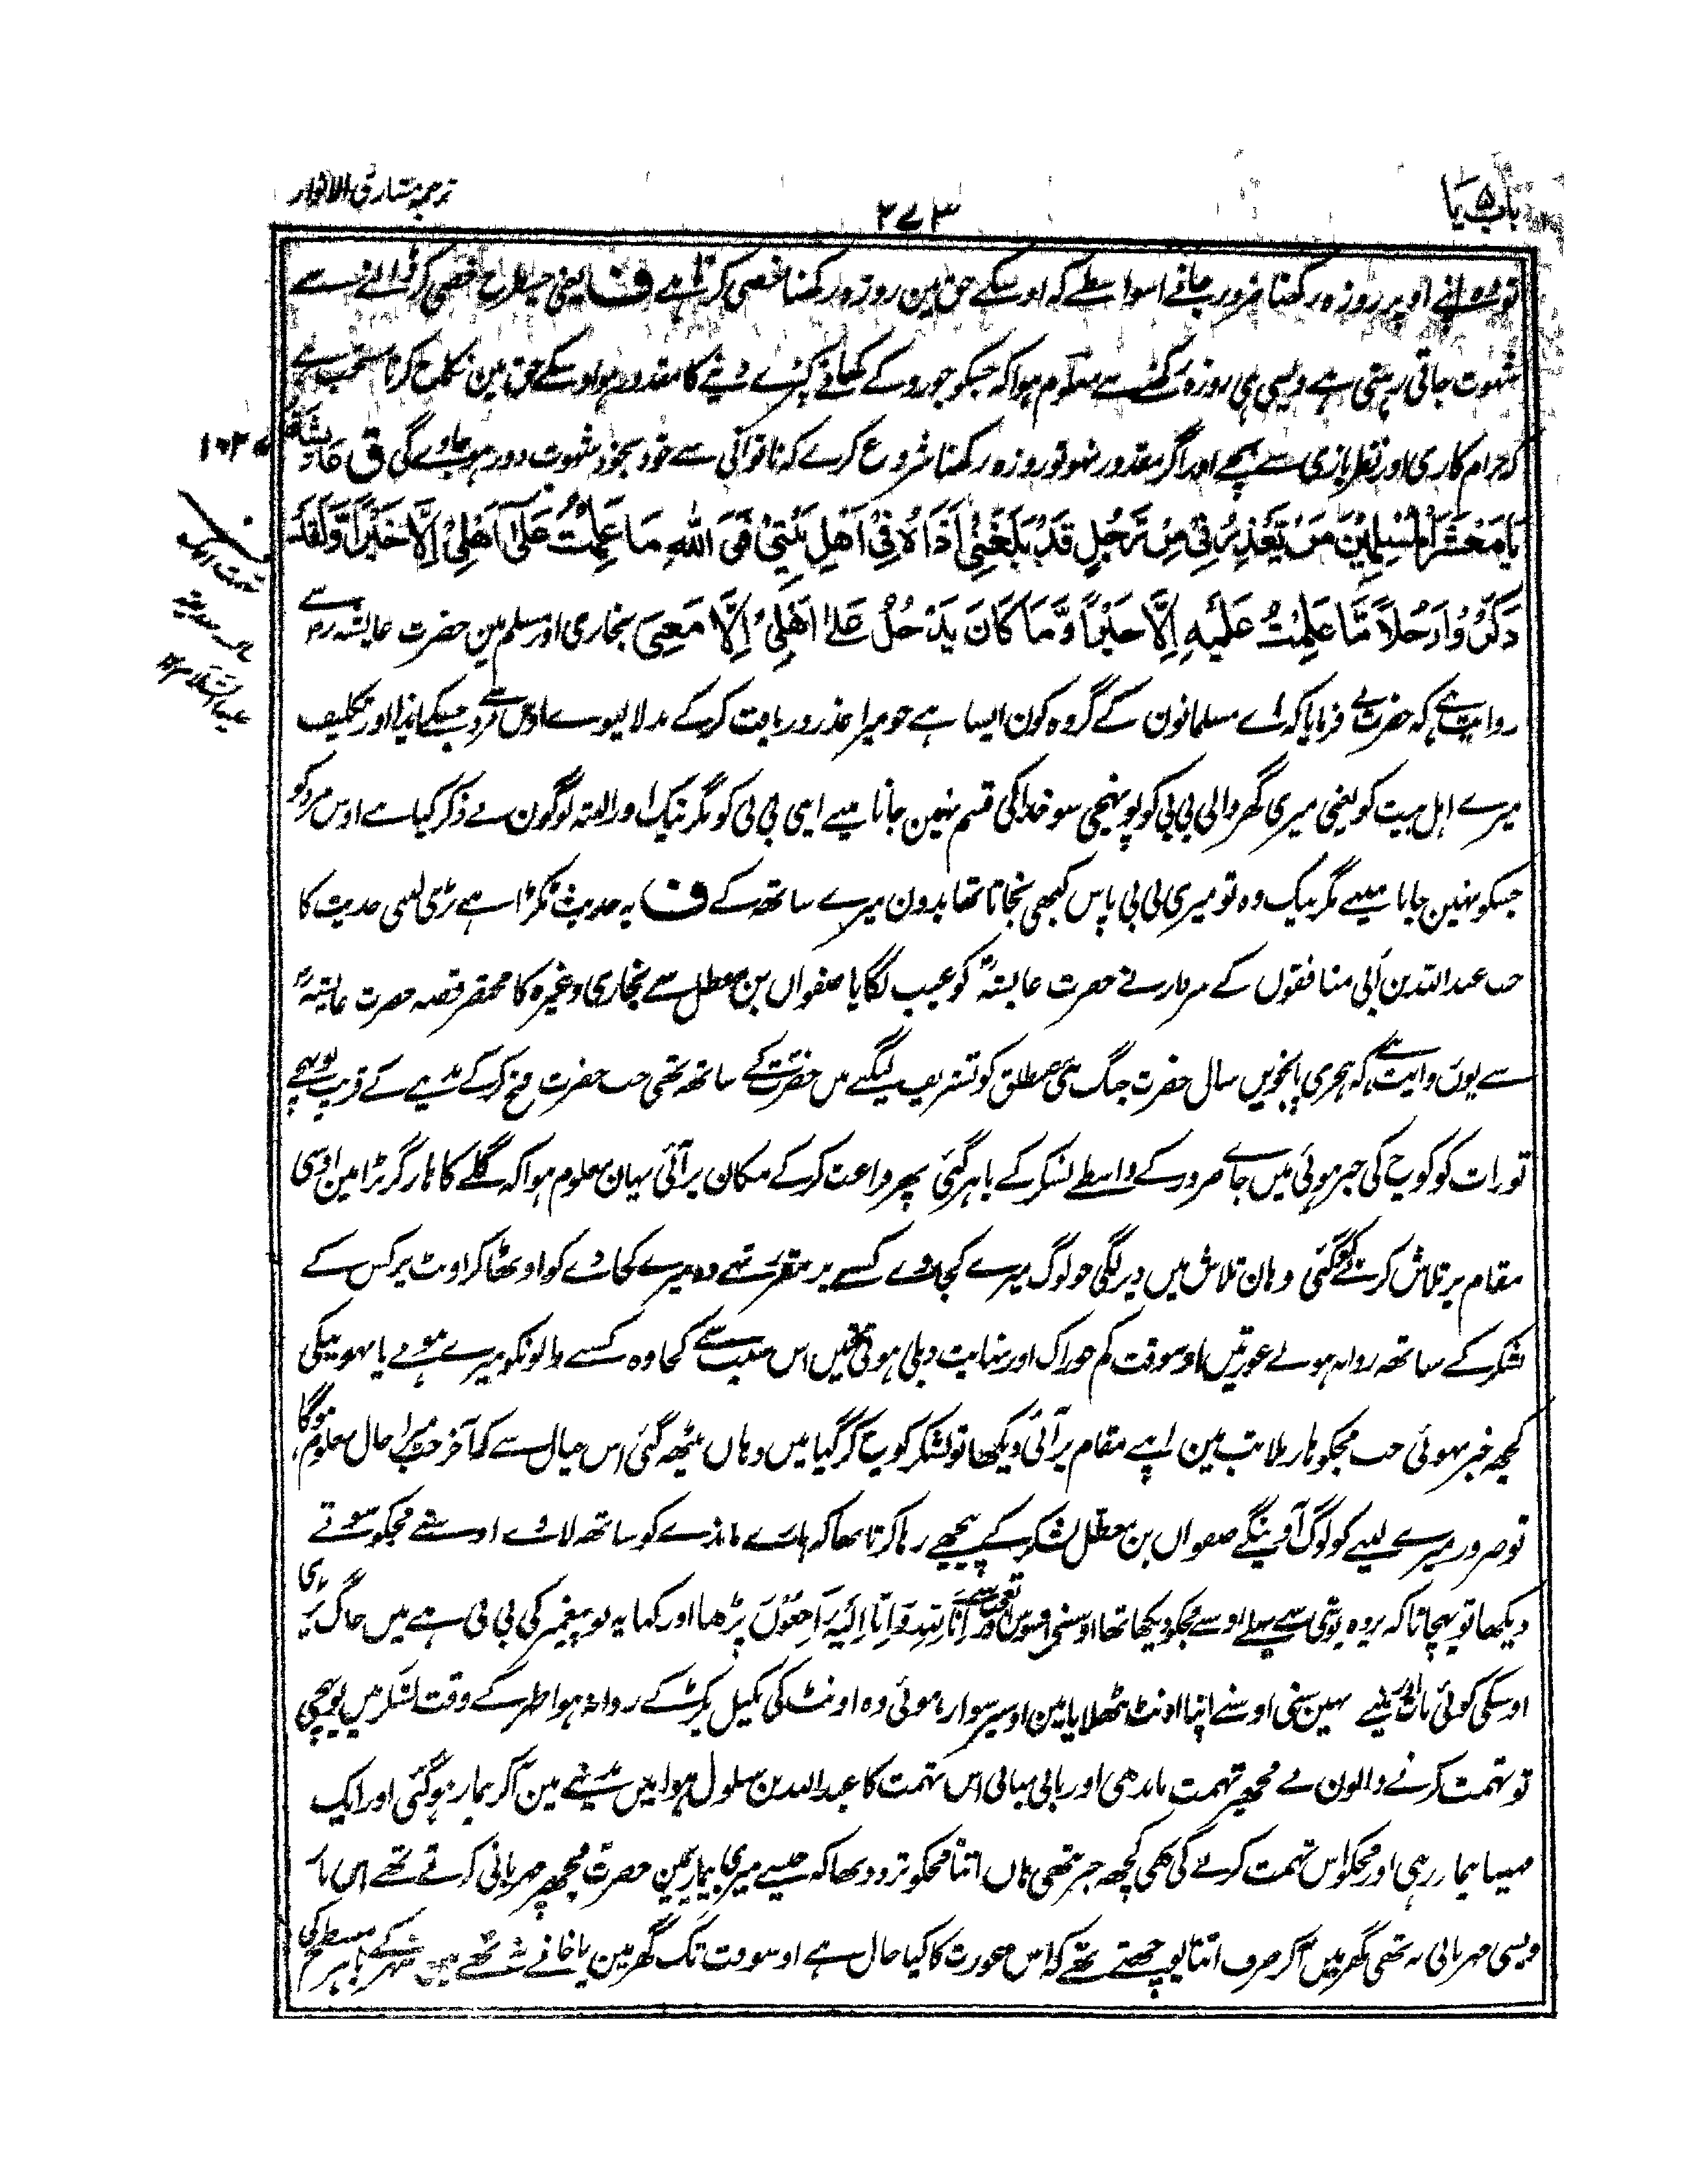 باب ۵ یا
۲۷۳
ترجمہ مشارق الانوار
تو وہ اپنے اوپر روزہ رکھنا ضرور جانے اسواسطے کہ اوسکے حق مین روزہ رکھنا خصی کرتا ہے ف یعنی جسطرح خصی کر ڈالنے سے
شہوت جاتی رہتی ہے ویسی ہی روزہ رکھنے سے معلوم ہوا کہ جسکو جورو کے کھانے کپڑے دینے کا مقدور ہو اوسکے حق مین نکاح کرنا مستحب ہے
کہ حرام کاری اور نظر بازی سے بچے اور اگر مقدور نہو تو روزہ رکھنا شروع کرے کہ ناتوانی سے خود بخود شہوت دور ہو جاوے گی ق عائشۃ
۱۰۲۷
یَا مَعْشَرَ الْمُسْلِمِیْنَ مَنْ یَّعْذِرُنِیْ مِنْ رَّجُلٍ قَدْ بَلَغَنِیْ اَذَاہُ فِیْ اَھْلِ بَیْتِیْ فَوَ اللہِ مَا عَلِمْتُ عَلٰی اَھْلِیْ اِلَّا خَیْرًا وَّلَقَدْ
ذَکَرُوْا رَجُلًا مَّا عَلِمْتُ عَلَیْہِ اِلَّا خَیْرًا وَّمَا کَانَ یَدْخُلُ عَلٰی اَھْلِیْ اِلَّا مَعِیَ بخاری اور مسلم مین حضرت عایشہ رض سے
روایت ہے کہ حضرت نے فرمایا کہ اے مسلمانون کے گروہ کون ایسا ہے جو میرا عذر دریافت کر کے بدلا لیوے اوس مرد سے جسکی ایذا اور تکلیف
میرے اہل بیت کو یعنی میری گھر والی بی بی کو پہونچی سو خدا کی قسم نہین جانا مینے اپنی بی بی کو مگر نیک اور البتہ لوگون نے ذکر کیا ہے اوس مرد کو
جسکو نہین جانا مینے مگر نیک وہ تو میری بی بی پاس کبھی نجاتا تھا بدون میرے ساتھ کے ف یہ حدیث ٹکڑا ہے بڑی لمبی حدیث کا
جب عبد اللہ بن اُبی منافقوں کے سردار نے حضرت عایشہ رض کو عیب لگایا صفوان بن معطل سے بخاری وغیرہ کا مختصر قصہ حضرت عایشہ رض
سے یوں روایت ہے کہ ہجری پانچویں سال حضرت جنگ بنی مصطلق کو تشریف لیگئے میں حضرت کے ساتھ تھی جب حضرت فتح کر کے مدینے کے قریب پہونچے
تو رات کو کوچ کی خبر ہوئی میں جاے ضرور کے واسطے لشکر کے باہر گئی پھر فراغت کر کے مکان پر آئی یہان معلوم ہوا کہ گلے کا ہار گر پڑا مین اوسی
مقام پر تلاش کرنے کو گئی وہان تلاش میں دیر لگی جو لوگ میرے کجاوے کسنے پر مقرر تھے وہ میرے کجاوے کو اوٹھا کر اونٹ پر کس کے
لشکر کے ساتھ روانہ ہوئے عورتیں اوسوقت کم خوراک اور نہایت دبلی ہوتی تھیں اس سبب سے کجاوہ کسنے والونکو میرے ہونے یا نہونیکی
کچھ خبر نہوئی جب مجکو ہار ملا تب مین اپنے مقام پر آئی دیکھا تو لشکر کوچ کر گیا میں وہاں بیٹھ گئی اس خیال سے کہ آخر جب میرا حال معلوم ہوگا
تو ضرور میرے لینے کو لوگ آوینگے صفوان بن معطل لشکر کے پیچھے رہا کرتا تھا کہ ہارے ماندے کو ساتھ لاوے اوسنے مجکو سوتے
دیکھا تو پہچانا کہ پردہ پوشی سے پہلے اوسنے مجکو دیکھا تھا اوسنے افسوس اور تعجب سے اِنَّا لِلّٰہِ وَاِنَّا اِلَیْہِ رَاجِعُوْنَ پڑھا اور کہا یہ تو پیغمبر کی بی بی ہے میں جاگ پڑی
اوسکی کوئی بات اور مینے نہین سنی اوسنے اپنا اونٹ بٹھلایا مین اوسپر سوار ہوئی وہ اونٹ کی نکیل پکڑ کے روانہ ہوا ظہر کے وقت لشکر میں پہونچی
تو تہمت کرنے والون نے مجھپر تہمت باندھی اور بانی مبانی اس تہمت کا عبد اللہ بن سلول ہوا میں مدینے مین آکر بیمار ہو گئی اور ایک
مہینا بیمار رہی اور مجکو اس تہمت کرنے کی بھی کچھ خبر نتھی ہاں اتنا مجکو تردد تھا کہ جیسے میری بیماری مین حضرت مجھپر مہربانی کرتے تھے اس بار
ویسی مہربانی نہ تھی گھر میں آکر صرف اتنا پوچھتے تھے کہ اس عورت کا کیا حال ہے اوسوقت تک گھر مین پاخانے نہ تھے میں شہر کے باہر مسطح کی